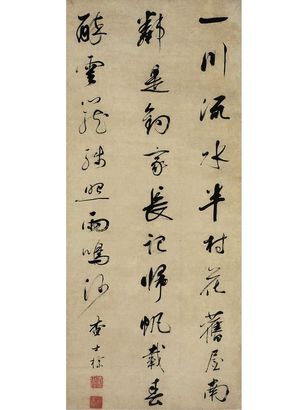 一川流水半村花舊屋南
鄰是釣家長記歸帆載春
醉雲籠殘照雨鳴沙 查士標